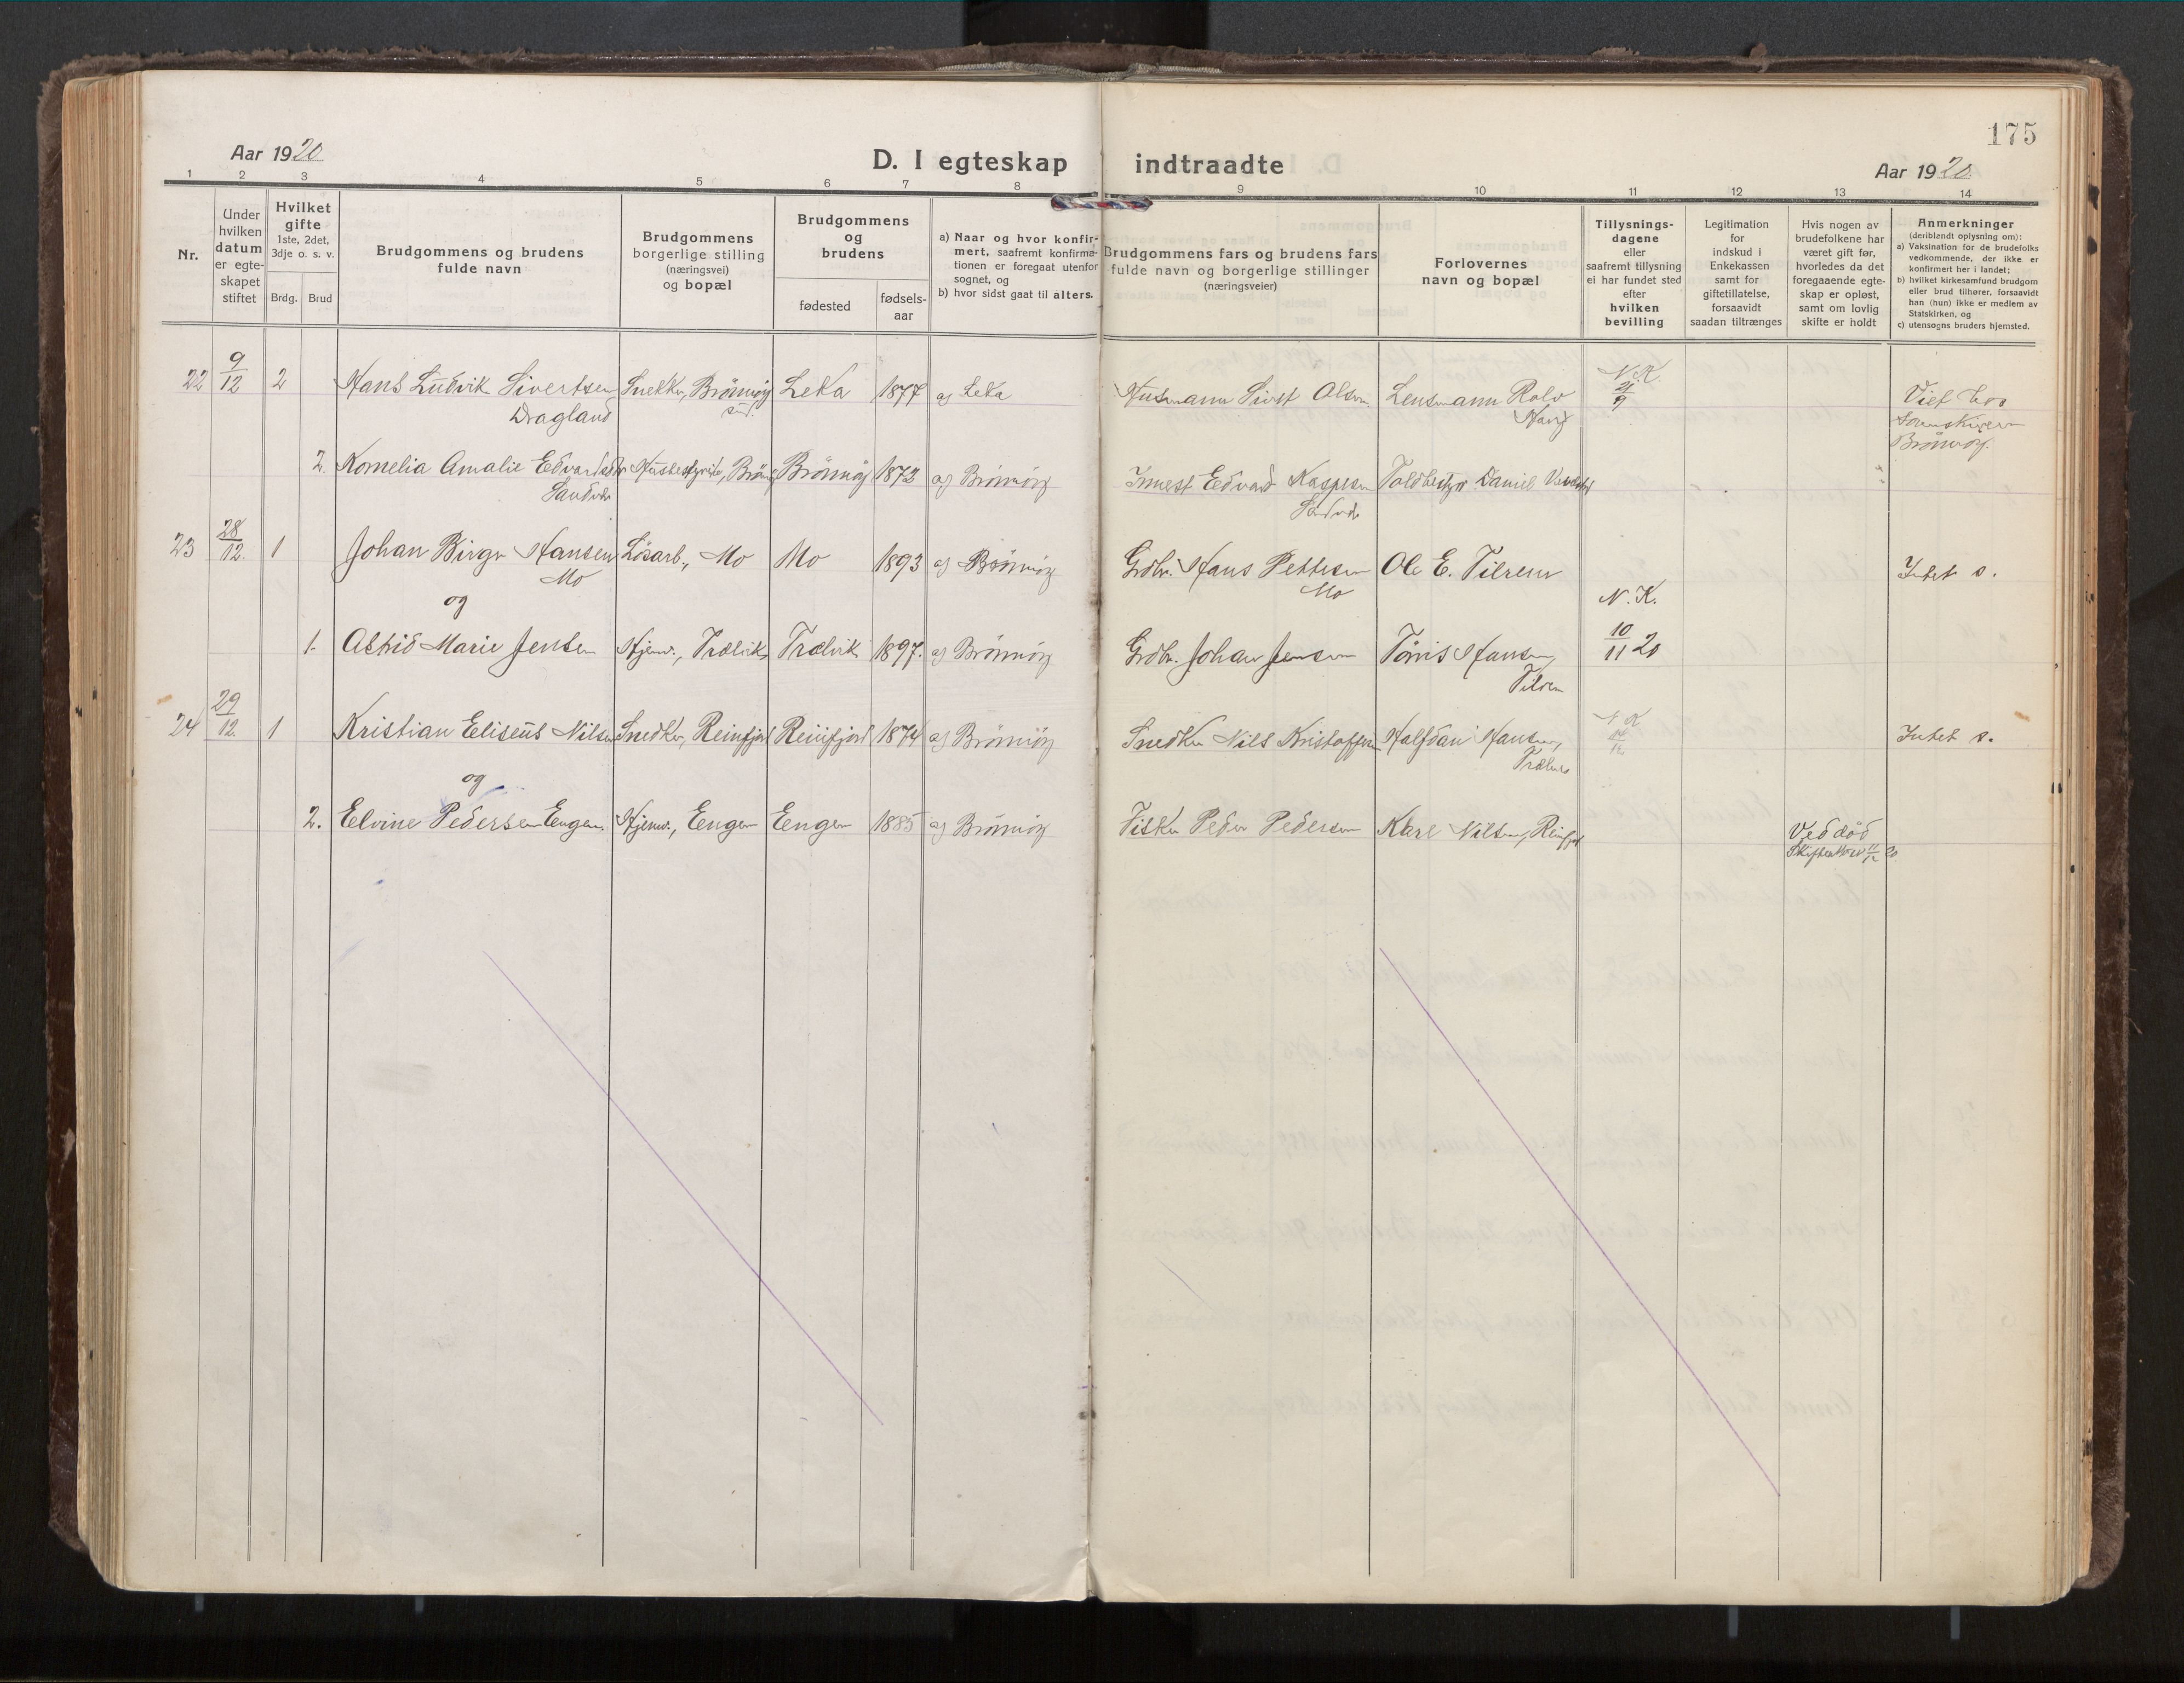 175
Aar 1920
D. I egteskap indtraadte
Aar 1920
1 2 3 4 5 6 7 8 9 10 11 12 13 14
Nr.
Under hvilken datum er egte-skapet stiftet
Hvilket gifte
1ste, 2det, 3dje o. s. v.
Brdg. Brud
Brudgommens og brudens fulde navn
Brudgommens borgerlige stilling (næringsvei) og bopæl
Brudgommens og brudens
fødested
fødsels-aar
a) Naar og hvor konfir-mert, saafremt konfirma-tionen er foregaat utenfor sognet, og
b) hvor sidst gaat til alters.
Brudgommens fars og brudens fars fulde navn og borgerlige stillinger (næringsveier)
Forlovernes navn og bopæl
Tillysnings-dagene eller saafremt tillysning ei har fundet sted efter hvilken bevilling
Legitimation for indskud i Enkekassen samt for giftetillatelse, forsaavidt saadan tiltrænges
Hvis nogen av brudefolkene har været gift før, hvorledes da det foregaaende egte-skap er opløst, samt om lovlig skifte er holdt
Anmerkninger (deriblandt oplysning om):
a) Vaksination for de brudefolks vedkommende, der ikke er konfirmert her i landet;
b) hvilket kirkesamfund brudgom eller brud tilhører, forsaavidt han (hun) ikke er medlem av Statskirken, og
c) utensogns bruders hjemsted.
22 9/12 2 Hans Ludvik Sivertsen Snekker, Brönnöy Leka 1877 og Leka Husmann Sivert Olsen Lensmann Rolv N.K. Viet hos
Dragland Havig 2/9 Sorenskriveren
Brönnöy
2. Kornelia Amalie Brönnöy 1873 og Brönnöy Edvard Kaspersen Daniel
23 28/12. 1 Johan Birger Hansen Lösarb., Mo Mo 1893 og Brönnöy Grdbr. Hans Pettersen Ole E. Tilrem Intet s.
Mo Mo
og N. K.
1. Astrid Marie Jensen Hjemv., Trælvik Trælvik 1897. og Brönnöy Grdbr. Johan Jensen Tönis Hansen, 10/11 20
Tilrem
24 29/12. 1 Kristian Eliseus Nilsen Snedker, Reinfjord Reinfjord 1874 og Brönnöy Snedker Nils Kristoffersen Halfdan Hansen, N K Intet s.
Trælvik
og
2. Elvine Pedersen Engen. Hjemv., Engen Engen 1885 og Brönnöy Fisker Peder Pedersen Karl Nilsen, Reinfjord Ved död